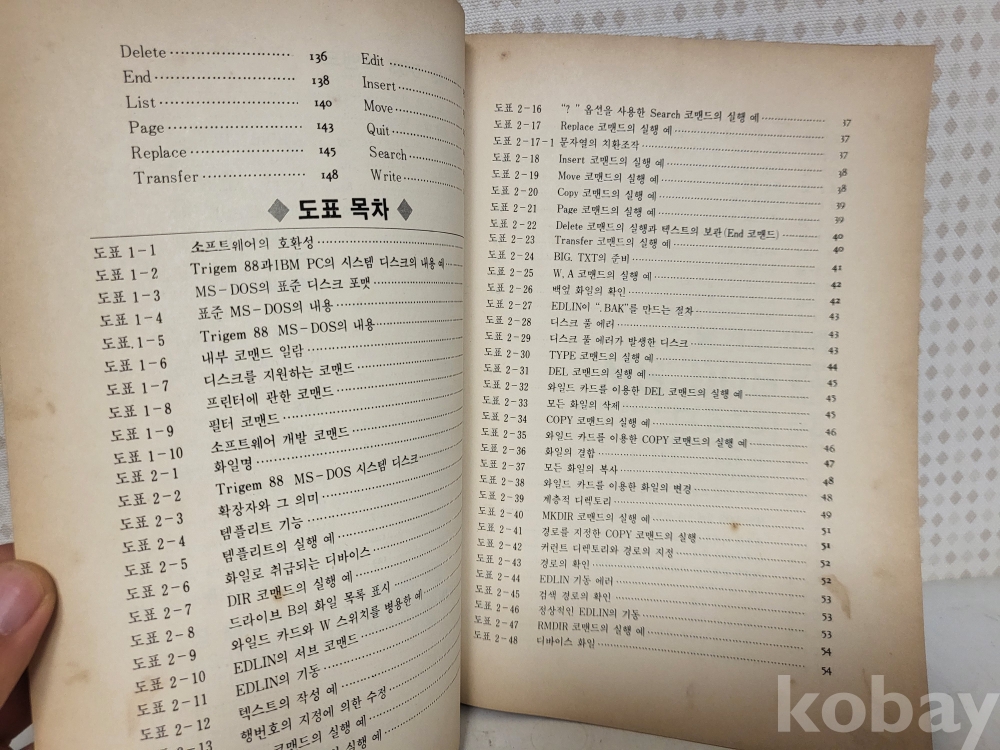 Delete 136
End 138
List 140
Page 143
Replace 145
Transfer 148
Edit
Insert
Move
Quit
Search
Write
◆ 도표 목차 ◆
도표 1-1 소프트웨어의 호환성
도표 1-2 Trigem 88과 IBM PC의 시스템 디스크의 내용 예
도표 1-3 MS-DOS의 표준 디스크 포맷
도표 1-4 표준 MS-DOS의 내용
도표 1-5 Trigem 88 MS-DOS의 내용
도표 1-6 내부 코맨드 일람
도표 1-7 디스크를 지원하는 코맨드
도표 1-8 프린터에 관한 코맨드
도표 1-9 필터 코맨드
도표 1-10 소프트웨어 개발 코맨드
도표 2-1 화일명
도표 2-2 Trigem 88 MS-DOS 시스템 디스크
도표 2-3 확장자와 그 의미
도표 2-4 템플리트 기능
도표 2-5 템플리트의 실행 예
도표 2-6 화일로 취급되는 디바이스
도표 2-7 DIR 코맨드의 실행 예
도표 2-8 드라이브 B의 화일 목록 표시
도표 2-9 와일드 카드와 W 스위치를 병용한 예
도표 2-10 EDLIN의 서브 코맨드
도표 2-11 EDLIN의 기동
도표 2-12 텍스트의 작성 예
2-13 행번호의 지정에 의한 수정
코맨드의 실행 예
실행 예
도표 2-16 “?” 옵션을 사용한 Search 코맨드의 실행 예 37
도표 2-17 Replace 코맨드의 실행 예 37
도표 2-17-1 문자열의 치환조작 37
도표 2-18 Insert 코맨드의 실행 예 38
도표 2-19 Move 코맨드의 실행 예 38
도표 2-20 Copy 코맨드의 실행 예 39
도표 2-21 Page 코맨드의 실행 예 39
도표 2-22 Delete 코맨드의 실행과 텍스트의 보관(End 코맨드) 40
도표 2-23 Transfer 코맨드의 실행 예 40
도표 2-24 BIG. TXT의 준비 41
도표 2-25 W, A 코맨드의 실행 예 42
도표 2-26 백엎 화일의 확인 42
도표 2-27 EDLIN이 “.BAK”를 만드는 절차 43
도표 2-28 디스크 풀 에러 43
도표 2-29 디스크 풀 에러가 발생한 디스크 43
도표 2-30 TYPE 코맨드의 실행 예 44
도표 2-31 DEL 코맨드의 실행 예 45
도표 2-32 와일드 카드를 이용한 DEL 코맨드의 실행 예 45
도표 2-33 모든 화일의 삭제 45
도표 2-34 COPY 코맨드의 실행 예 46
도표 2-35 와일드 카드를 이용한 COPY 코맨드의 실행 예 46
도표 2-36 화일의 결합 47
도표 2-37 모든 화일의 복사 48
도표 2-38 와일드 카드를 이용한 화일의 변경 48
도표 2-39 계층적 디렉토리 49
도표 2-40 MKDIR 코맨드의 실행 예 51
도표 2-41 경로를 지정한 COPY 코맨드의 실행 51
도표 2-42 커런트 디렉토리와 경로의 지정 52
도표 2-43 경로의 확인 52
도표 2-44 EDLIN 기동 에러 53
도표 2-45 검색 경로의 확인 53
도표 2-46 정상적인 EDLIN의 기동 53
도표 2-47 RMDIR 코맨드의 실행 예 54
도표 2-48 디바이스 화일 54
kobay